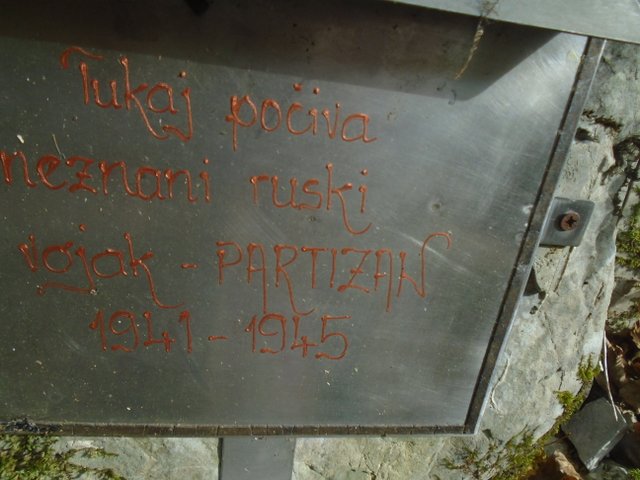 Tukaj počiva
neznani ruski
vojak - PARTIZAN
1941 - 1945